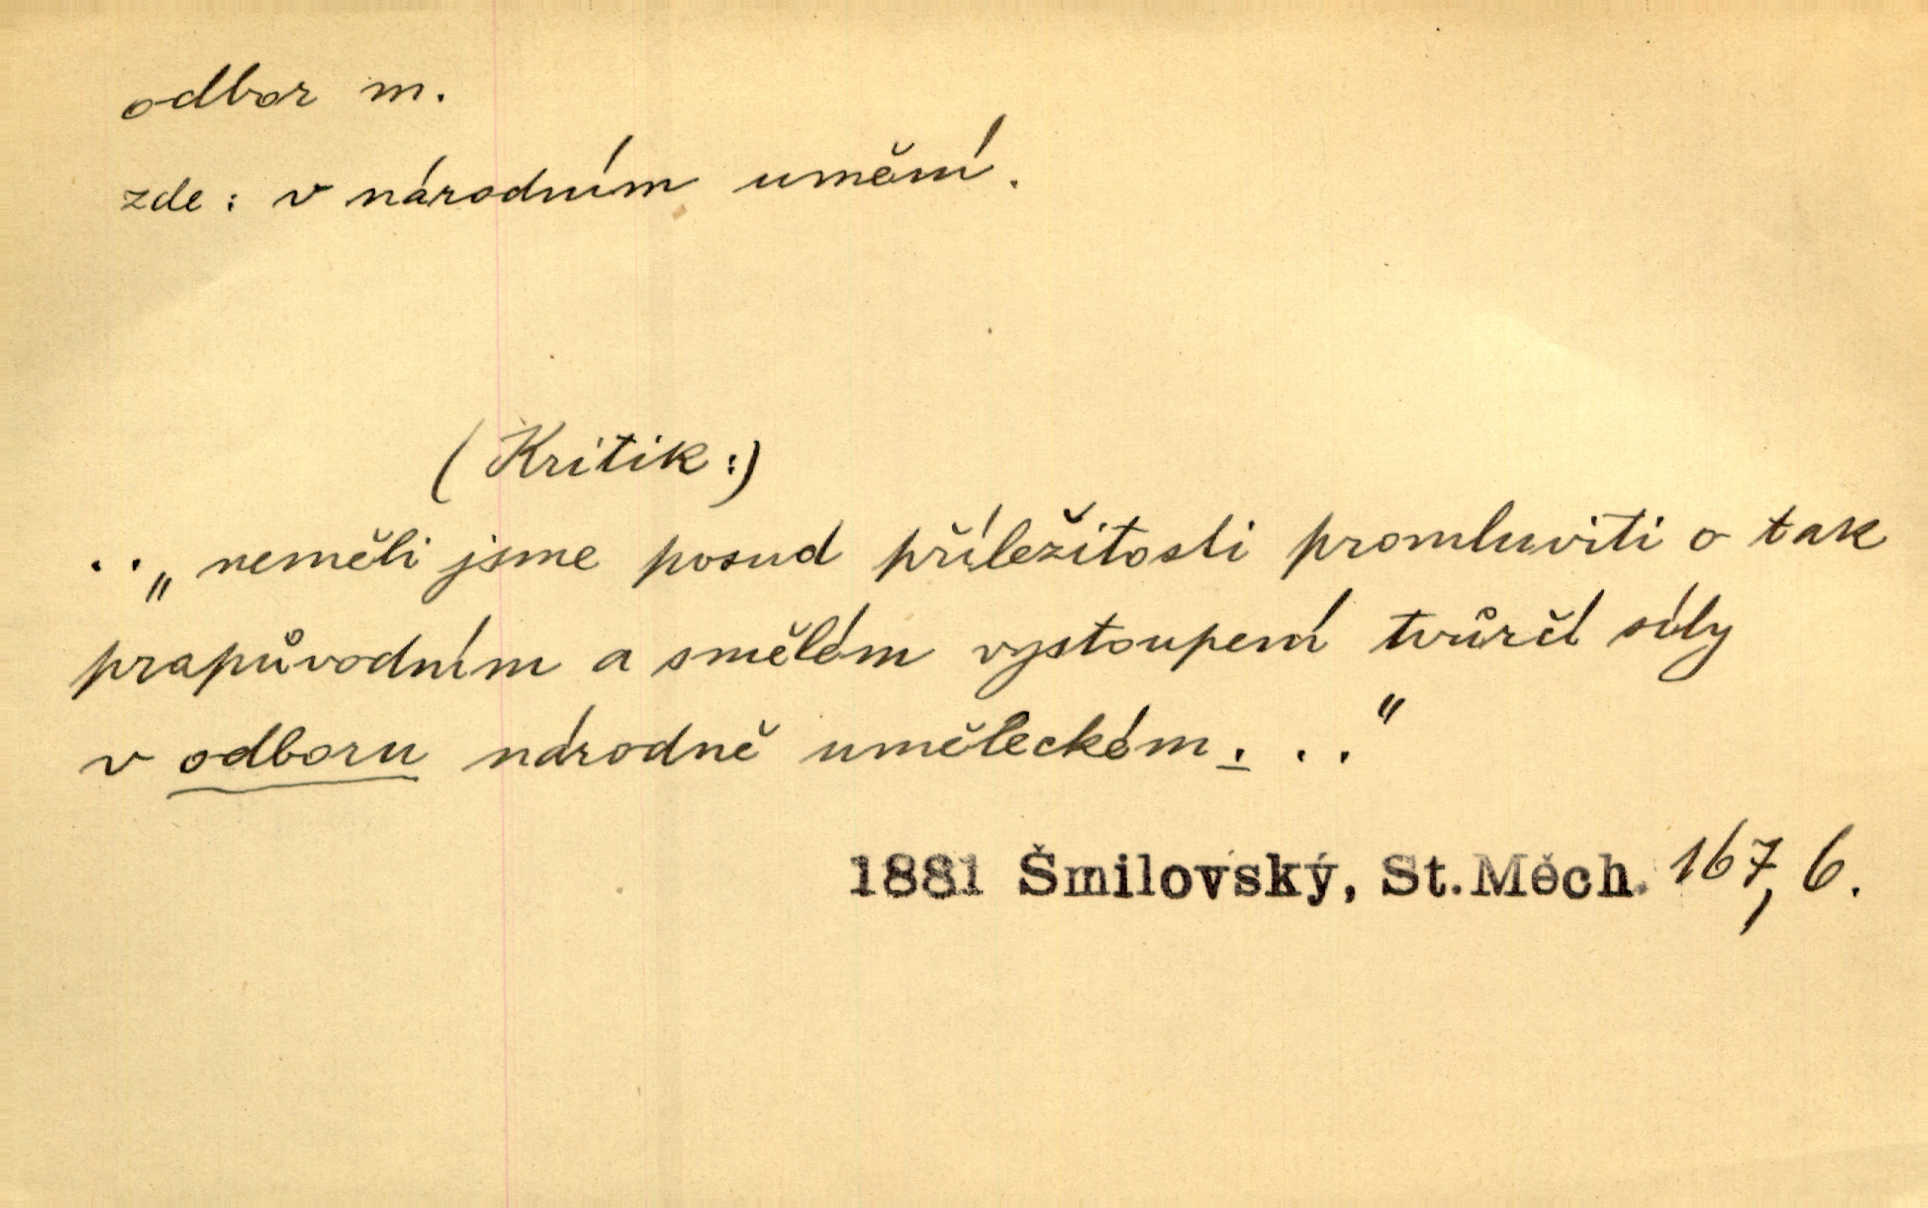 odbor m.
zde: v národním umění.
(Kritik:)
..„ neměli jsme posud příležitosti promluviti o tak
prapůvodním a smělém vystoupení tvůrčí síly
v odboru národně uměleckém. . .“
1881 Šmilovský, St.Měch. 167, 6.